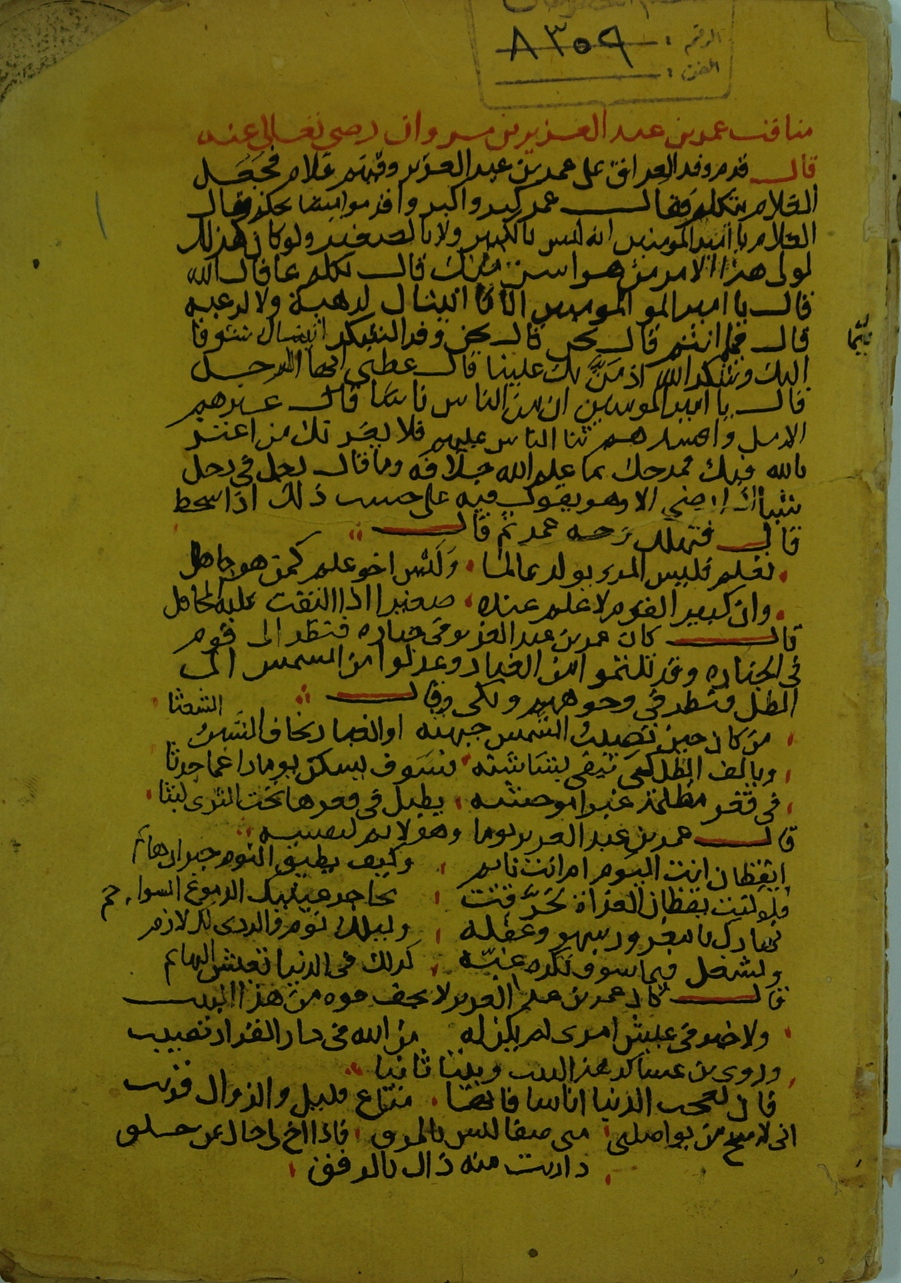 الرقم : ٨٣٥٩
الفن :
مناقب عمر بن عبد العزيز بن مروان رضي تعالى عنه
قال قدم وفد العراق على عمر بن عبد العزيز وفيهم غلام فجعل
الغلام يتكلم فقال عمر كبروا كبروا فقال
الغلام يا امير المومنين انه ليس بالكبير ولا بالصغير ولو كان كذلك
لولى هذا الامر من هو اسن منك قال تكلم عافاك الله
قال يا امير المو المومنين انا اتيناك لا لرهبة ولا لرغبه
قال فما انتم قال نحن وفد الشكر اتيناك شوقا
اليك وشكر الله اذ من بك علينا قال عظني ايها الرجل
قال يا امير المومنين ان من الناس ناسا قال غرهم
الامل وافسدهم ثنا الناس عليهم فلا يغرنك من اغتر
بالله فيك فمدحك بما علم الله خلافه وما قال رجل في رجل
شيا اذا رضي الا وهو يقول فيه على حسب ذلك اذا سخط
قال فتهلل وجه عمر ثم قال
تعلم فليس المرء يولد عالما وليس اخو علم كمن هو جاهل
وان كبير القوم لا علم عنده صغير اذا التفت عليه المحافل
قال كان عمر بن عبد العزيز في جنازه فنظر الى قوم
في الجنازه وقد تلثموا من الغبار وعدلوا من الشمس الى
الظل فنظر في وجوههم وبكى وقال
من كان حين تصيب الشمس جبهته او الغبار يخاف الشين والشعثا
ويالف الظل كي تبقى بشاشته فسوف يسكن يوما راغما جدثا
في قعر مظلمة غبرا موحشه يطيل في قعرها تحت الثرى لبثا
قال عمر بن عبد العزيز يوما وهو لايم لنفسه
ايقظان انت اليوم ام انت نايم وكيف يطيق النوم حيران هايم
فلو كنت يقظان الغداة لحرقت محاجر عينيك الدموع السواجم
نهارك يا مغرور سهو وغفلة وليلك نوم والردى لك لازم
وتشغل فيما سوف تكره غبه كذلك في الدنيا تعيش البهايم
قال كان عمر بن عبد العزيز لا يجف فوه من هذا البيت
ولا خير في عيش امرى لم يكن له من الله في دار القرار نصيب
وروى بن عساكر هذا البيت وبيتا ثانيا
قال تعجب الدنيا اناسا فانها متاع قليل والزوال قريب
اني لامنح من يواصلني مني صفا ليس بالمذق فاذا اخ لي حال عن خلق
داريت منه ذاك بالرفق